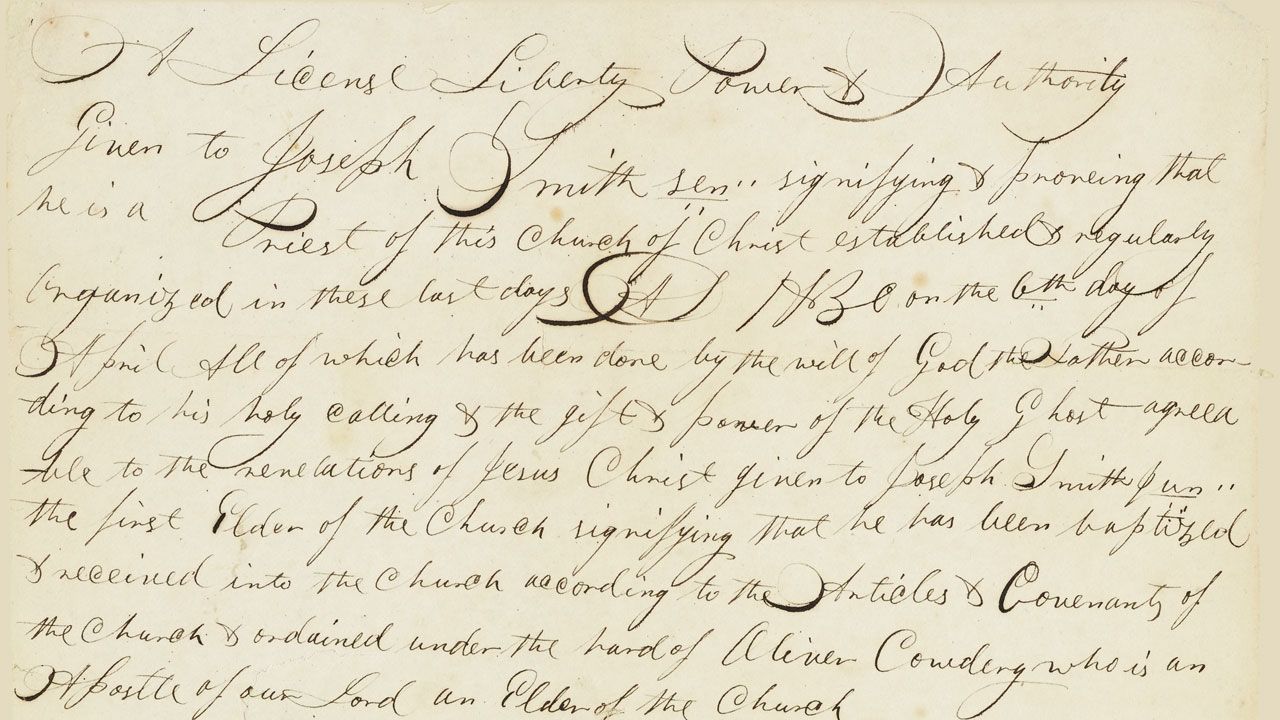 A License Liberty Power & Authority
Given to Joseph Smith sen.. signifying & proveing that
he is a Priest of this Church of Christ established & regularly
Organized in these last days AD 1830 on the 6th day of
April All of which has been done by the will of God the Father accor-
ding to his holy calling & the gift & power of the Holy Ghost agreea
-ble to the revelations of Jesus Christ given to Joseph Smith Jun..
the first Elder of the Church signifying that he has been baptized
& received into the Church according to the Articles & Covenants of
the Church & ordained under the hand of Oliver Cowdery who is an
Apostle of our Lord an Elder of the Church